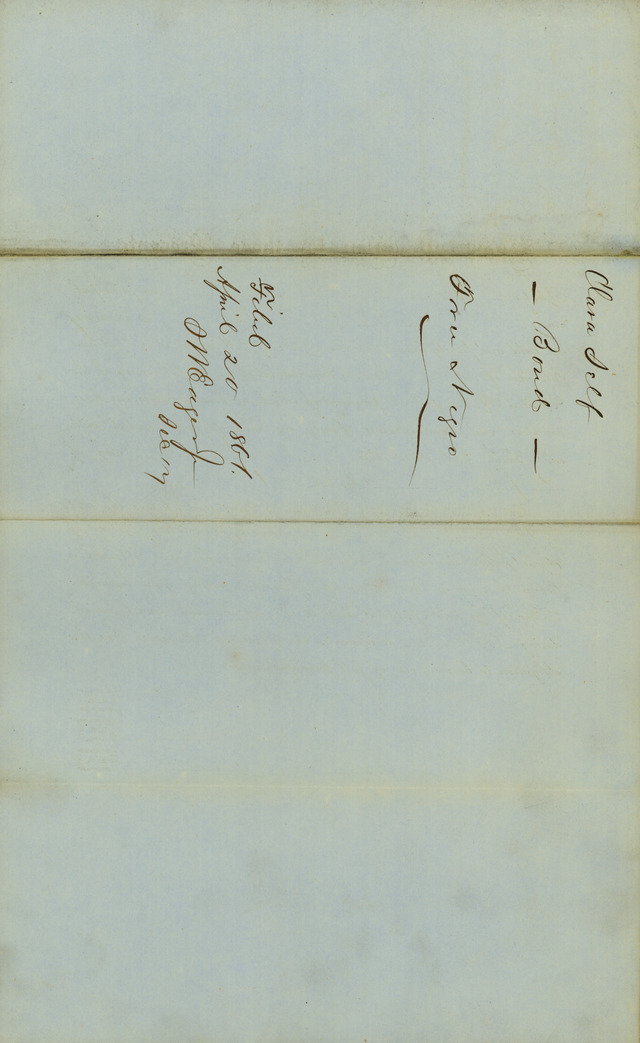 Clara Self
— Bond —
Free Negro
Filed
April 20 1861.